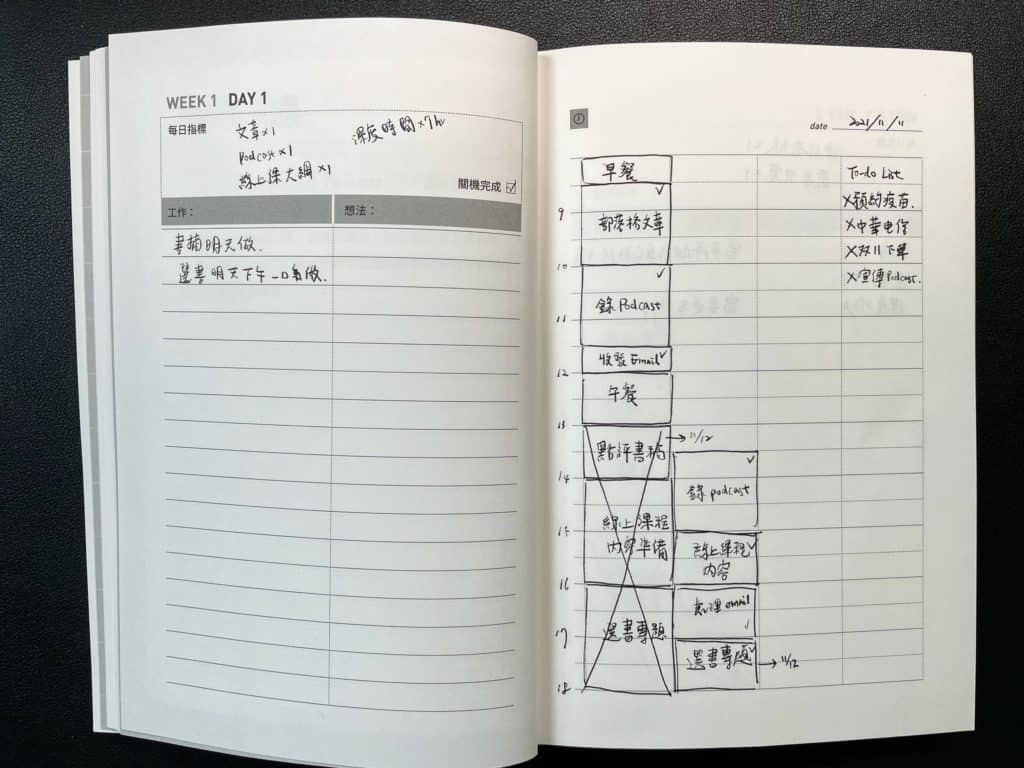 WEEK 1 DAY 1
每日指標
文章×1
深度時間×7hr
podcast×1
線上課大綱×1
關機完成
工作：
想法：
書摘明天做.
選書明天下午一口氣做.
date 2021/11/11
早餐
To-do List
9
部落格文章
X預約疫苗.
X中華电信
X双11下單
10
X宣傳Podcast.
錄Podcast
11
收發Email
12
午餐
13
點評書稿
→11/12
14
錄podcast
15
線上課程
內容準備
線上課程
內容
16
處理email
17
選書專題
選書專題
→11/12
18